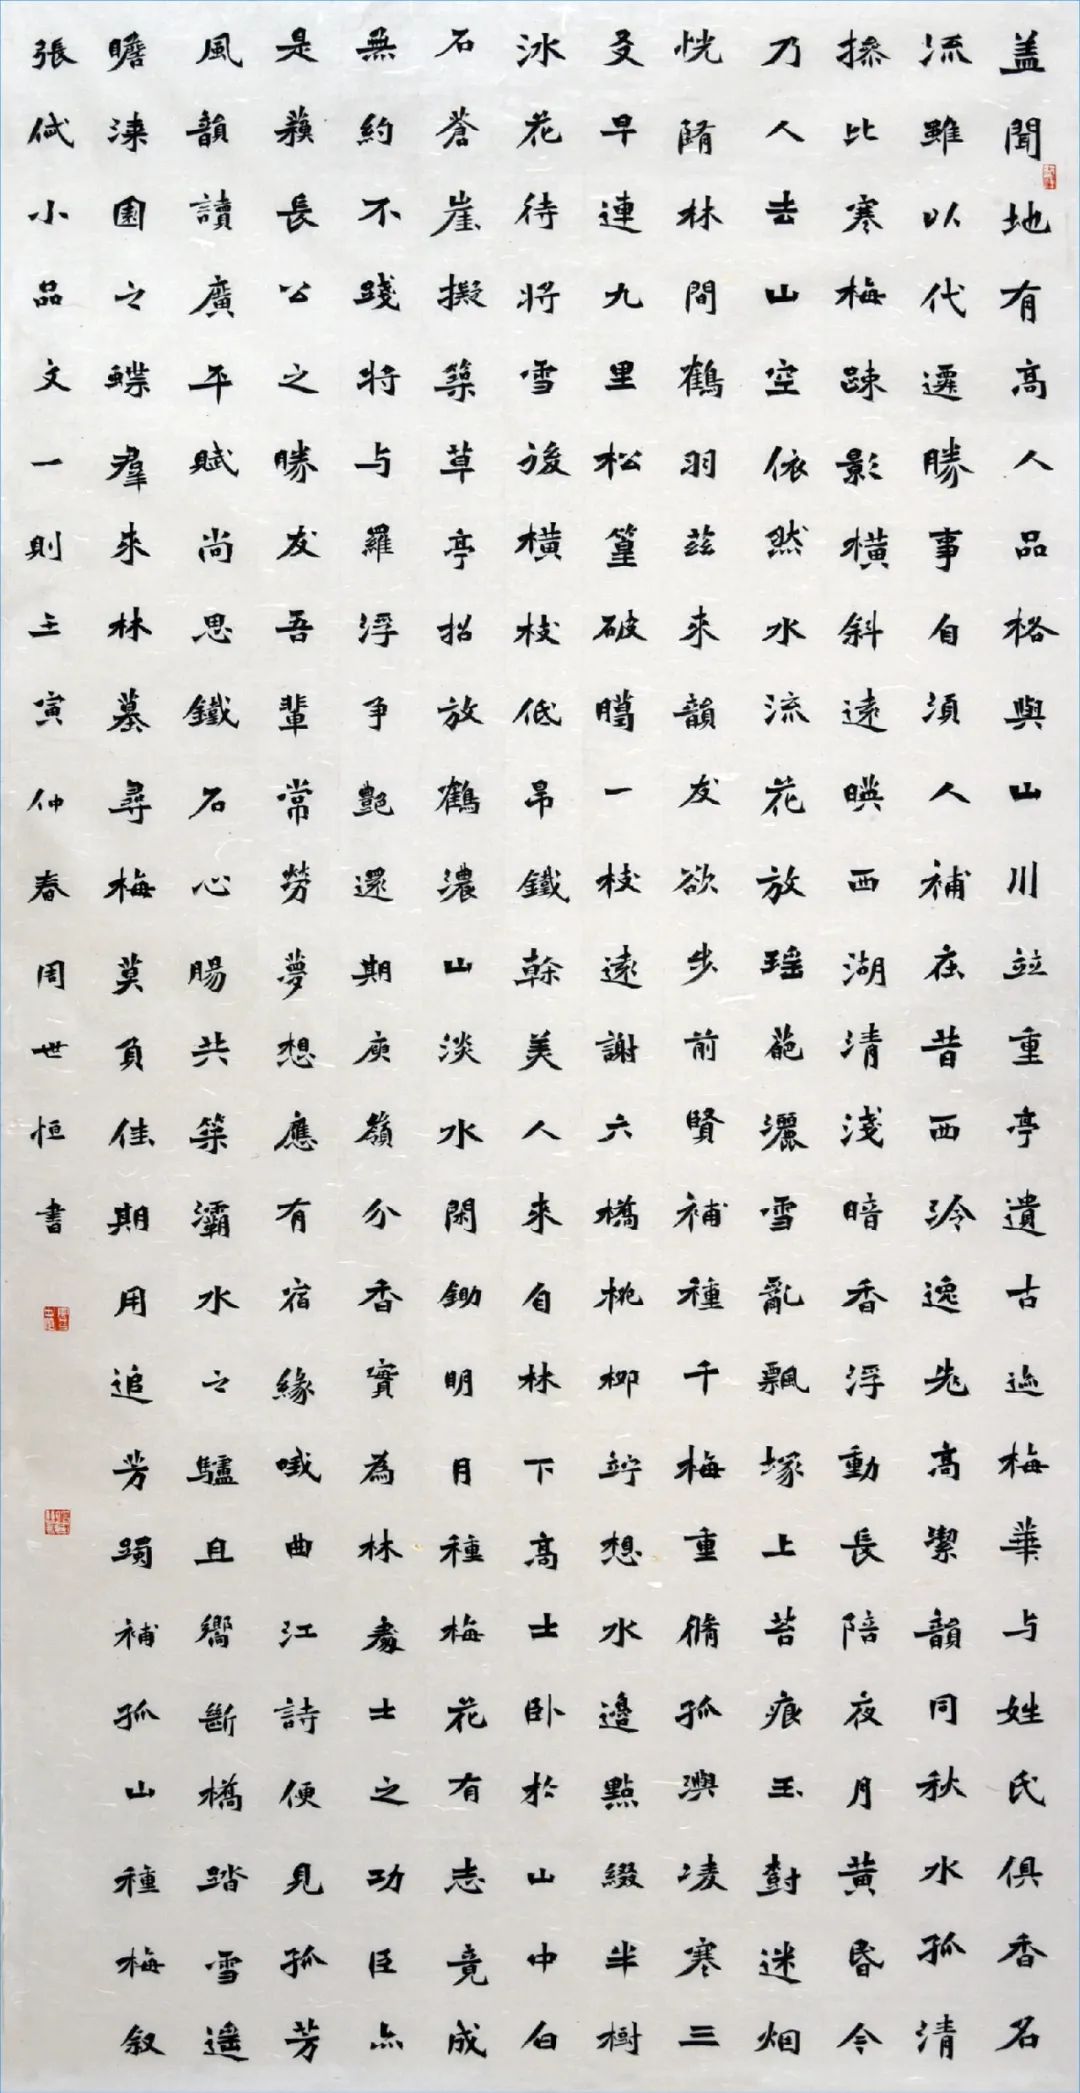 盖聞地有高人品格與山川竝重亭遺古迹梅華与姓氏俱香名
流雖以代遷勝事自須人補在昔西泠逸兆高潔韻同秋水孤清
摻比寒梅踈影橫斜遠暎西湖清淺暗香浮動長陪夜月黃昏今
乃人去山空依然水流花放瑶葩灑雪亂飄塚上苔痕玉𣗳迷烟
恍隋林間鶴羽兹來韻友欲步前賢補種千梅重脩孤嶼凌寒三
友早連九里松篁破臈一枝遠謝六橋桃柳竚想水邊點綴半樹
冰花待將雪後橫枝低昂鐵榦美人來自林下高士卧於山中白
石蒼崖擬築草亭招放鶴濃山淡水閑鋤明月種梅花有志竟成
無約不踐將与羅浮爭艷還期庾嶺分香實為林處士之功臣亦
是蘓長公之勝友吾輩常勞夢想應有宿緣哦曲江詩便見孤芳
風韻讀廣平賦尚思鐵石心腸共策灞水之驢且嚮斷橋踏雪遥
瞻漆園之蝶羣來林墓尋梅莫負佳期用追芳躅補孤山種梅叙
張侙小品文一則壬寅仲春周世恒書